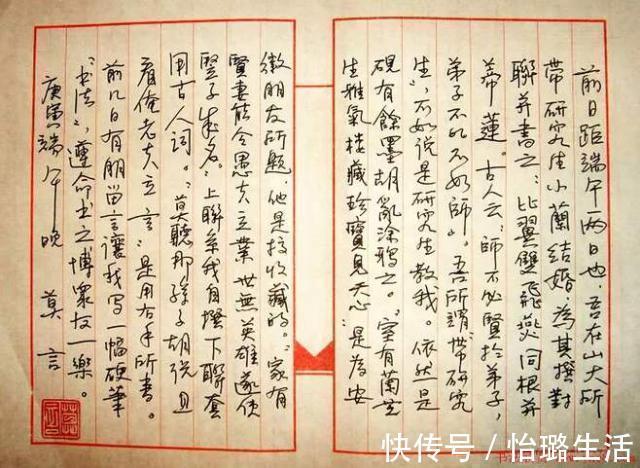 前日距端午一两日也,吾在山大所
带研究生小蘭结婚,為其撰对
聯并書之:比翼雙飛燕,同根并
蒂蓮。古人云:師不必賢於弟子,
弟子不必不如師”。吾所謂“带研究
生”,不如说是研究生教我。依然是
硯有餘墨,胡亂涂鴉之。“室有蘭芝
生雅氣,楼藏珍寶見天心”是為安
徽朋友所题,他是搞收藏的。“家有
賢妻能令愚夫立業,世無英雄遂使
竪子成名”上聯系我自撰,下聯套
用古人词。“莫聽那孫子胡说,且
看俺老夫立言”是用右手所書。
前几日有朋留言讓我写一幅硬筆
“书法”,遵命书之,博眾友一樂。
庚寅端午晚 莫言
快传号 / 怡璐生活